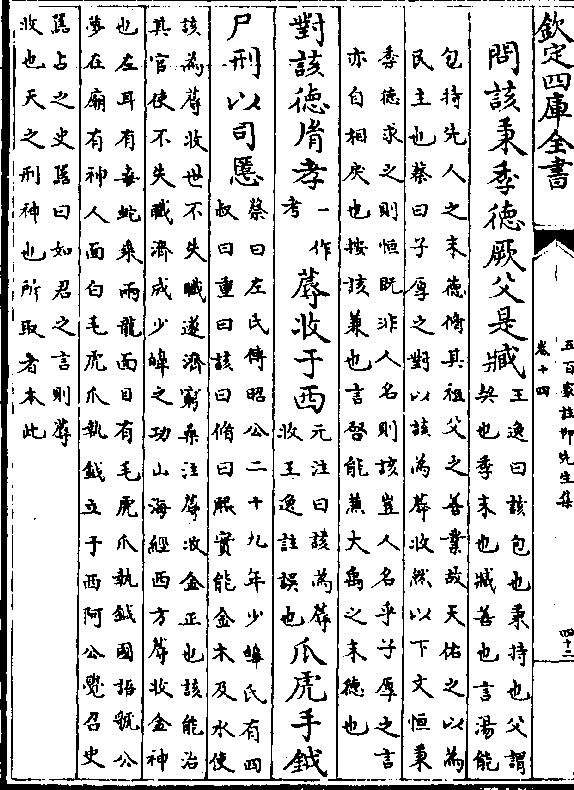 欽定四庫全書
五百家註柳先生集
卷十四
問該秉季德厥父是臧
王逸曰該包也秉持也父謂
契也季末也臧善也言湯能
包持先人之末德脩其祖父之善業故天佑之以為
民主也蔡曰子厚之對以該為蓐收然以下文恒秉
季德求之則恒既非人名則該豈人名乎子厚之言
亦自相戾也按該兼也言啓能兼大禹之末德也
對該德胥孝
一作
考
蓐收于西
元注曰該為蓐
收王逸註誤也
爪虎手鉞
尸刑以司慝
蔡曰左氏傳昭公二十九年少皥氏有四
叔曰重曰該曰脩曰熈實能金木及水使
該為蓐收世不失職遂濟窮桑注蓐收金正也該能治
其官使不失職濟成少皥之功山海經西方蓐收金神
也左耳有毒蛇乘兩龍面目有毛虎爪執鉞國語虢公
夢在廟有神人面白毛虎爪執鉞立于西阿公覺召史
嚚占之史嚚曰如君之言則蓐
收也天之刑神也所取者本此